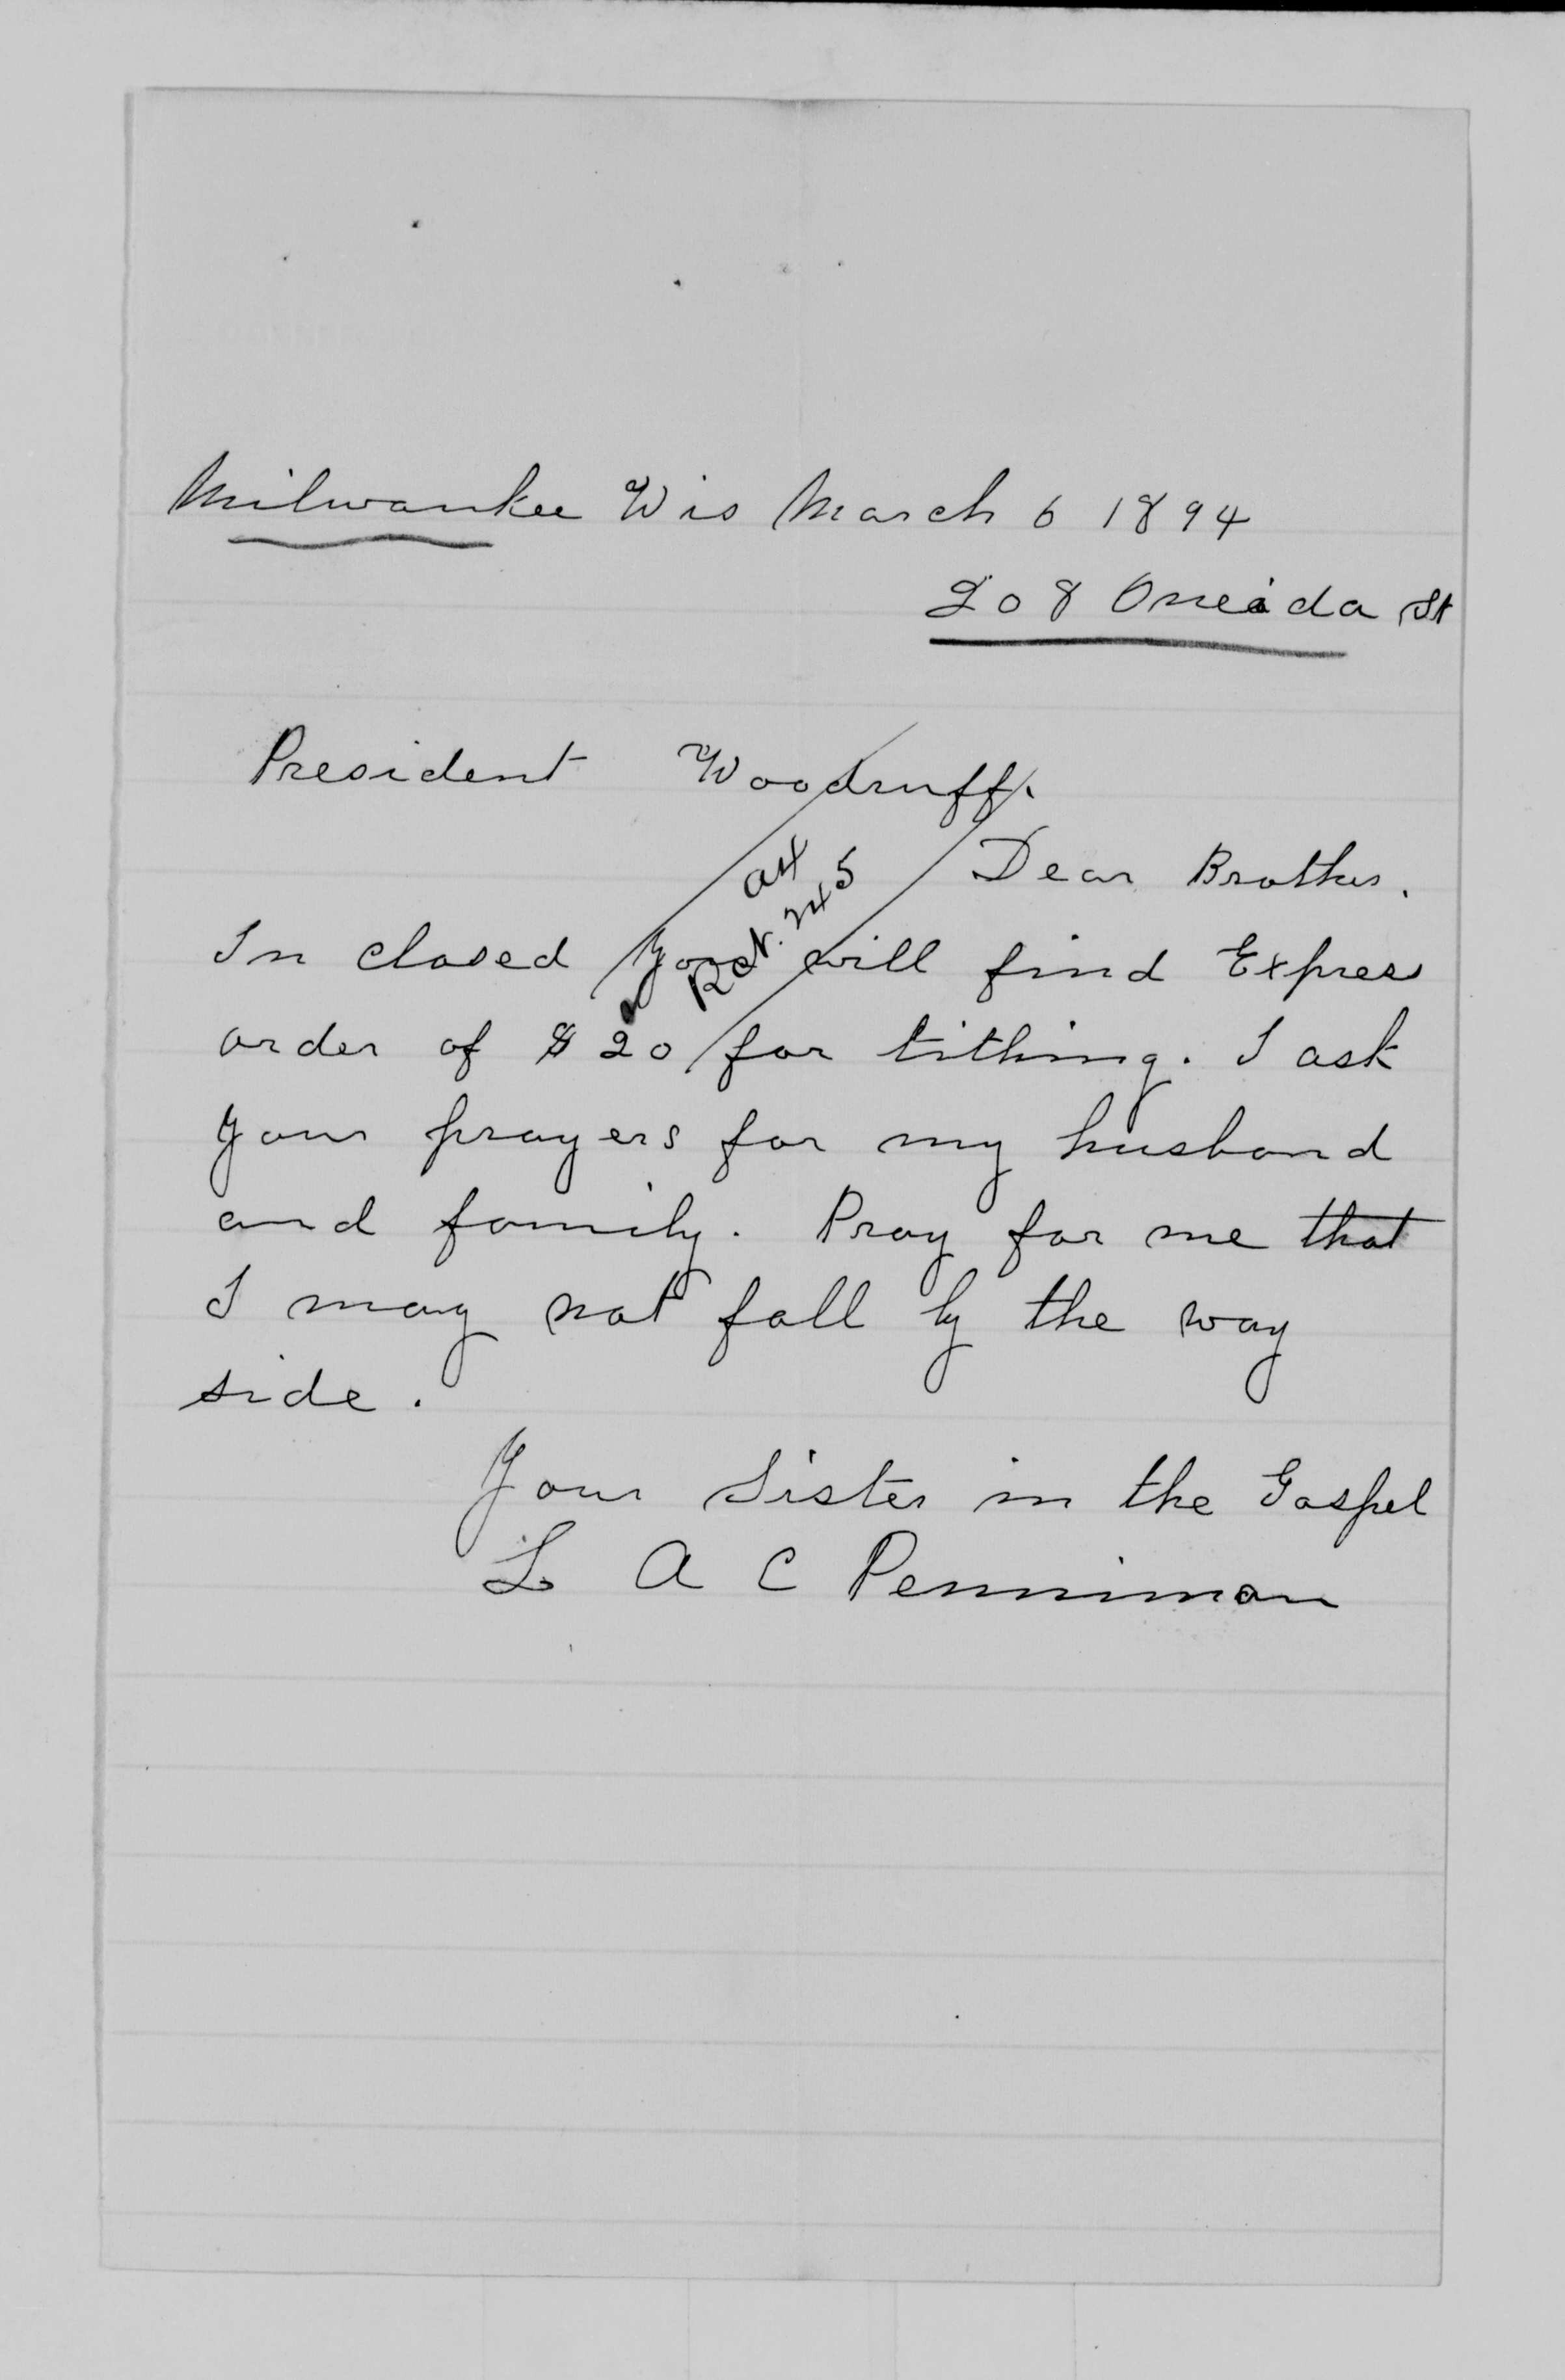 Milwaukee Wis March 6 1894
208 Oneida St
President Woodruff.
Dear Brother.
In closed you will find Expres
order of $20 for tithing. I ask
your prayers for my husband
and family. Pray for me that
I may not fall by the way
side.
Your Sister in the Gospel
L A C Penniman
Rct. 245